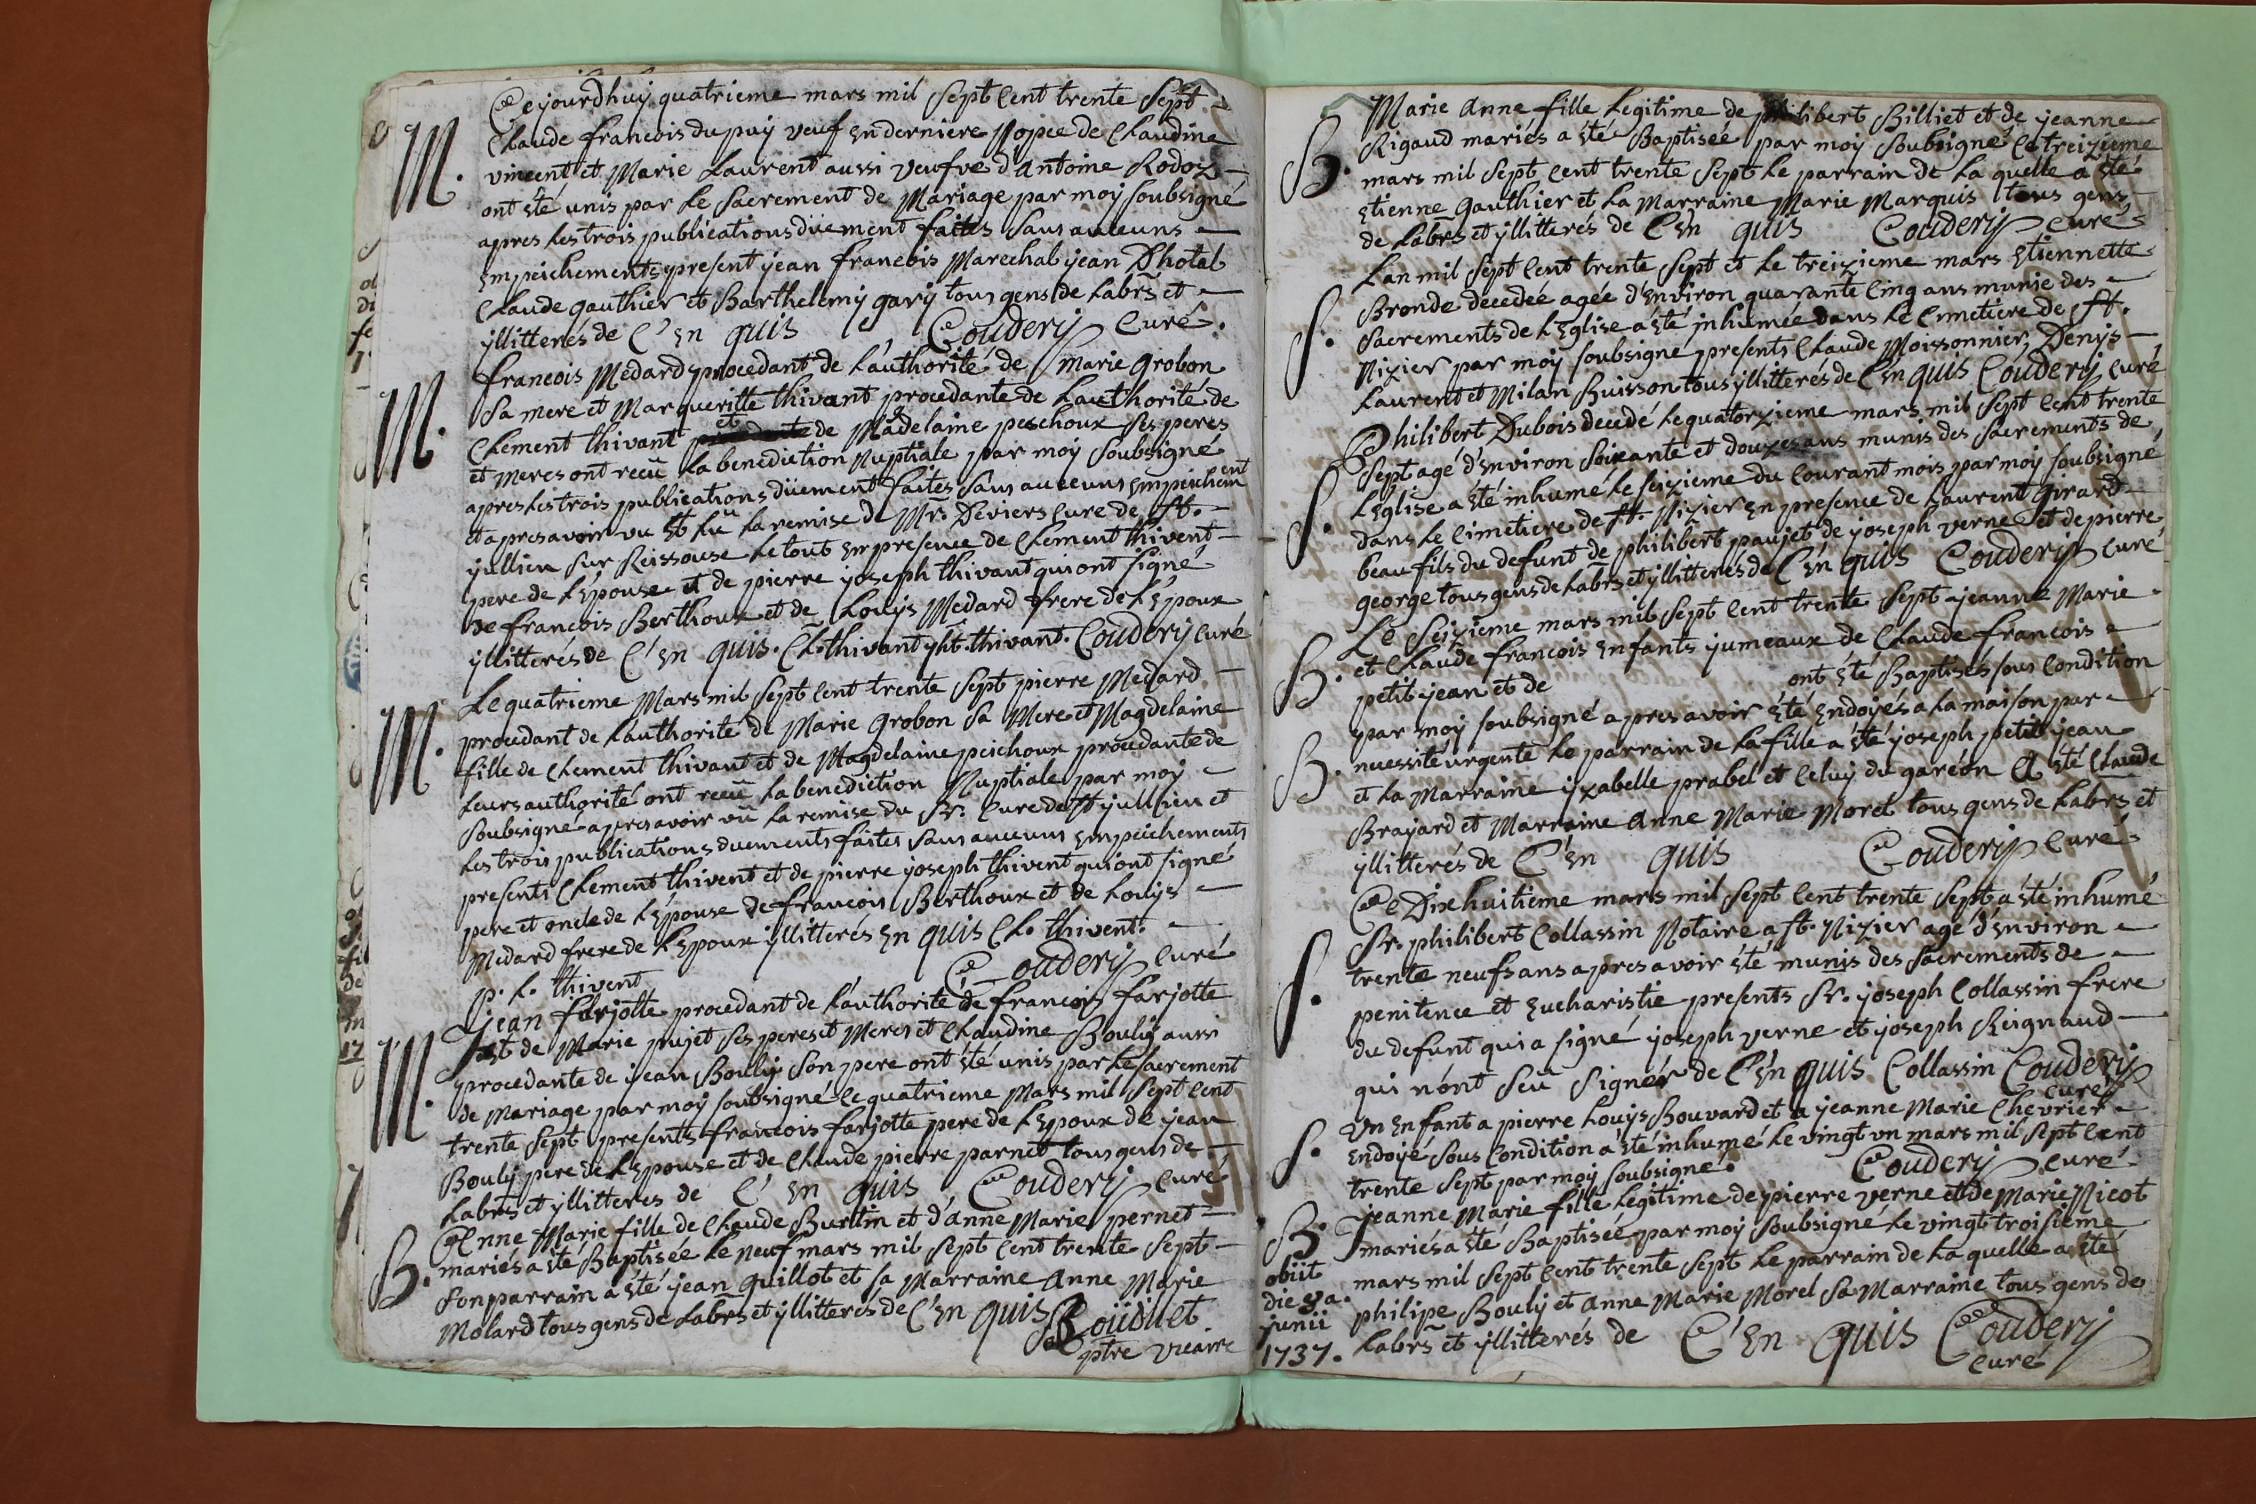 Cejourdhuy quatrieme mars mil Sept Cent trente Sept
M. Claude francois du puy veuf En derniere Nopce de Claudine
vincent et Marie Laurent aussi veufve d'Antoine Rodoz
ont Eté unis par le Sacrement de Mariage par moy soubsigné
apres les trois publications düement faites Sans aucuns
Empeichements present jean francois Marechal jean Dhotal
Claude gauthier et Barthelemy gary tous gens de Labrs et
yllitterés de C' En quis Coudery Curé.
M. francois Medard procedant de L'authorité de Marie grobon
Sa mere et Margueritte thivant procedante de L'authorite de
Clement thivant et de Madelaine peschoux Ses peres
et meres ont recû La benediction Nuptiale par moy Soubsigné
apres Les trois publications düement faites Sans aucuns Empeichent
et apres avoir vu et Lu La remise de Mr. Deviers Cure de St.
jullien Sur Reissouse Le tout En presence de Clement thivent
pere de L'Epouse et de pierre joseph thivant qui ont Signé
de francois Berthoux et de Louys Medard frere de L'Epoux
yllitterés de C'En quis. Cl. thivant pht. thivant. Coudery Curé
M. Le quatrieme Mars mil Sept Cent trente Sept pierre Medard
procedant de L'authorité de Marie grobon Sa Mere et Magdelaine
fille de Clement thivant et de Magdelaine peichoux procedante de
Leurs authorité ont recû La benediction Nuptiale par moy
Soubsigné apres avoir vû La remise du Sr. Cure de St jullien et
Les trois publications duements faites Sans aucuns Empeichements
presents Clement thivent et de pierre joseph thivent qui ont Signé
pere et oncle de L'Epouse de francois Berthoux et de Louys
Medard frere de L'Epoux yllitterés En quis Cl. thivent.
p. h. thivent Coudery Curé
M. Jean farjotte procedant de L'authorité de francois farjotte
et de Marie pujet Ses peres et Meres et Claudine Bouly aussi
procedante de jean Bouly Son pere ont Eté unis par Le Sacrement
de Mariage par moy soubsigné Le quatrieme Mars mil Sept Cent
trente Sept presents francois farjotte pere de L'Epoux de jean
Bouly pere de L'Epouse et de Claude pierre parnet tous gens de
Labrs et yllitterés de C' En quis Coudery Curé
B. Anne Marie fille de Claude Burtin et d'anne Marie pernet
mariés a été Baptisée Le neuf mars mil Sept Cent trente Sept
Son parrain a Eté jean guillot et Sa Marraine Anne Marie
Molard tous gens de Labrs et yllitterés de C'En quis Boüdilet
ptre vicaire
B. Marie Anne fille Legitime de philibert Billiet et de jeanne
Rigaud mariés a Eté Baptisée par moy Soubsigné Le treizieme
mars mil Sept Cent trente Sept Le parrain de La quelle a Eté
Etienne gauthier et La Marraine Marie Marquis tous gens
de Labrs et yllitterés de C'En quis Coudery curé
S. Lan mil Sept Cent trente Sept et Le treizieme mars Etiennette
Bronde decedée agée d'Environ quarante Cinq ans munie des
Sacrements de L'Eglise a Eté inhumée dans Le Cimetiere de St.
Nizier par moy soubsigné presents Claude Moissonnier, Denys
Laurent et Milan Buisson tous yllitterés de C'En quis Coudery Curé
S. Philibert Dubois decedé Le quatorzieme mars mil Sept Cent trente
Sept agé d'Environ Soixante et douzes ans munis des Sacrements de
L'Eglise a Eté inhumé Le Seizieme du Courant mois par moy soubsigné
dans Le Cimetiere de St. Nizier En presence de Laurent girard
beau fils du defunt de philibert paujet de joseph verne et de pierre
george tous gens de Labrs et yllitterés de C'En quis Coudery Curé
B. Le Seizieme mars mil Sept Cent trente Sept jeanne Marie
et Claude francois Enfants jumeaux de Claude francois
petit jean et de ont Eté Baptisés sous Condition
par moy Soubsigné apres avoir Eté Endoyés a La maison par
B. necessité urgente Le parrain de La fille a Eté joseph petit jean
et La Marraine yzabelle prabel et Celuy du garcon a Eté Claude
Brayard et Marraine Anne Marie Morel tous gens de Labrs et
yllitterés de C' En quis Coudery Curé
S. Ce Dix huitieme mars mil Sept Cent trente Sept a Eté inhumé
Sr. philibert Collassin Notaire a St. Nizier agé d'Environ
trente neufs ans apres avoir Eté munis des Sacrements de
penitence et Eucharistie presents Sr. joseph Collassin frere
du defunt qui a Signé joseph verne et joseph Reignaud
qui n'ont Seu Signér de C'En quis Collassin Coudery
Curé
S. Un Enfant a pierre Louys Bouvard et a jeanne Marie Chevrier
Endoyé Sous Condition a Eté inhumé Le vingt un mars mil Sept Cent
trente Sept par moy Soubsigné. Coudery Curé
B. Jeanne Marie fille Legitime de pierre verne et de Marie Nicot
mariés a Eté Baptisée par moy Soubsigné Le vingt troisieme
obiit mars mil Sept Cent trente Sept Le parrain de La quelle a Eté
die 9a. philipe Bouly et Anne Marie Morel Sa Marraine tous gens de
junii Labrs et yllitterés de C'En quis Coudery
1737. curé